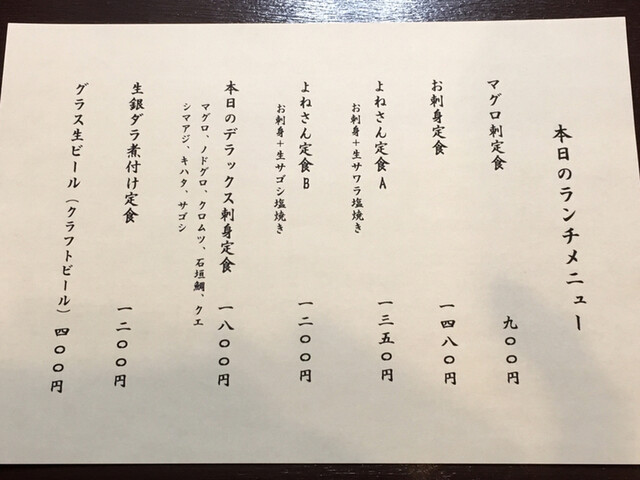 本日のランチメニュー
マグロ刺定食 九〇〇円
お刺身定食 一四八〇円
よねさん定食A 一三五〇円
お刺身+生サワラ塩焼き
よねさん定食B 一二〇〇円
お刺身+生サゴシ塩焼き
本日のデラックス刺身定食 一八〇〇円
マグロ、ノドグロ、クロムツ、石垣鯛、クエ
シマアジ、キハタ、サゴシ
生銀ダラ煮付け定食 一二〇〇円
グラス生ビール(クラフトビール) 四〇〇円